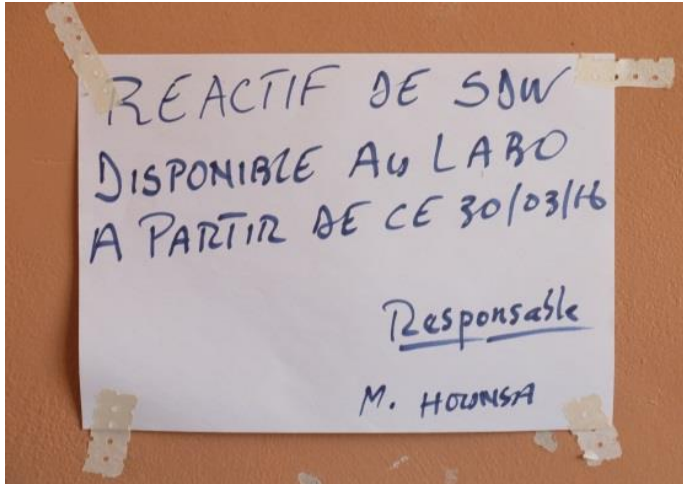 REACTIF DE SDW
DISPONIBLE AU LABO
A PARTIR DE CE 30/03/16
Responsable
M. HOUNSA